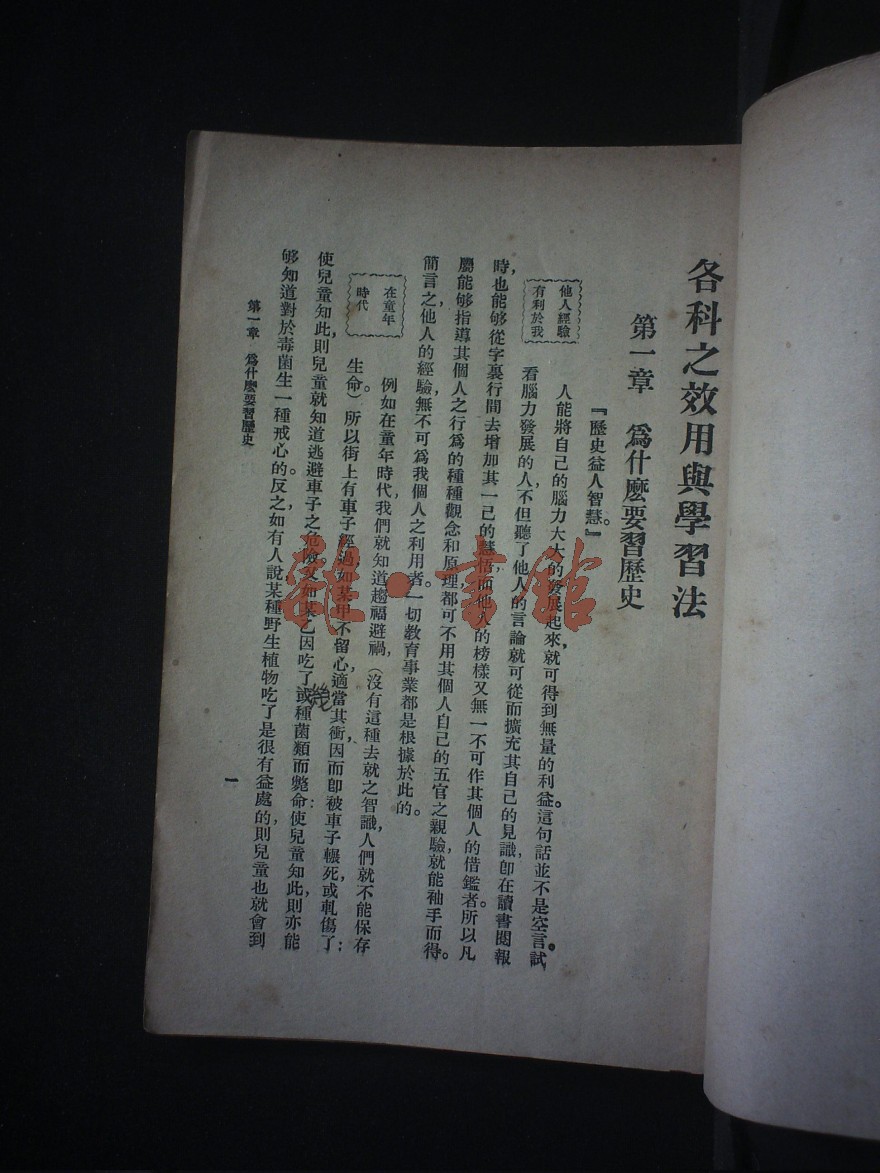 各科之效用與學習法
第一章　爲什麽要習歷史
『歷史益人智慧。』
他人經驗
有利於我
人能將自己的腦力大大的發展起來，就可得到無量的利益。這句話並不是空言。試
看腦力發展的人，不但聽了他人的言論就可從而擴充其自己的見識，卽在讀書閱報
時，也能够從字裏行間去增加其一己的慧悟，而他人的榜樣又無一不可作其個人的借鑑者。所以凡
屬能够指導其個人之行爲的種種觀念和原理，都可不用其個人自己的五官之親驗，就能袖手而得。
簡言之，他人的經驗無不可爲我個人之利用者。一切敎育事業都是根據於此的。
在童年
時代
例如在童年時代，我們就知道趨福避禍，（沒有這種去就之智識，人們就不能保存
生命）。所以街上有車子經過，如某甲不留心，適當其衝，因而卽被車子輾死，或軋傷了；
使兒童知此，則兒童就知道逃避車子之危險。又如某乙因吃了或種菌類而斃命；使兒童知此，則亦能
幾
够知道對於毒菌生一種戒心的。反之，如有人說某種野生植物吃了是很有益處的，則兒童也就會到
第一章　爲什麽要習歷史
一
雜·書館